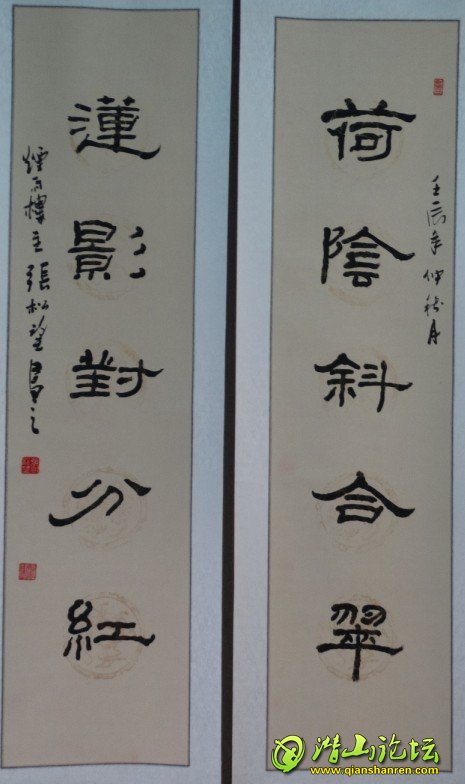 壬辰年仲秋月
荷陰斜合翠
蓮影對分紅
煙雨樓主張松望書之
潜山论坛
www.qianshanren.com